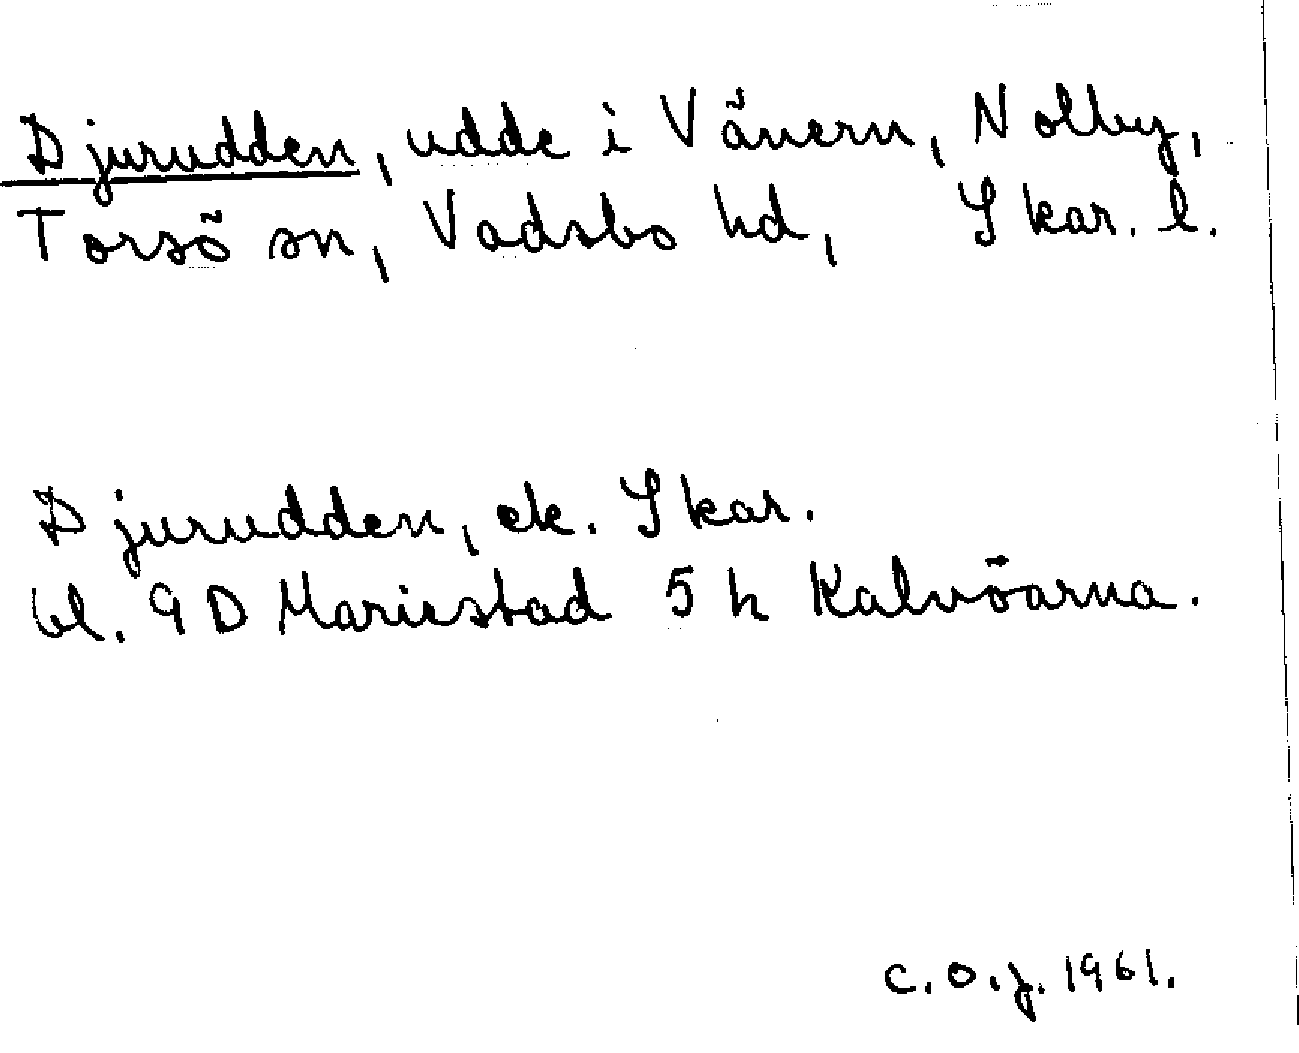 Djurudden, udde i Vänern, Nolby,
Torsö sn, Vadsbo hd, Skar. l.
Djurudden, ek. Skar.
bl. 9 D Mariestad 5 h Kalvöarna.
C. O. J. 1961.